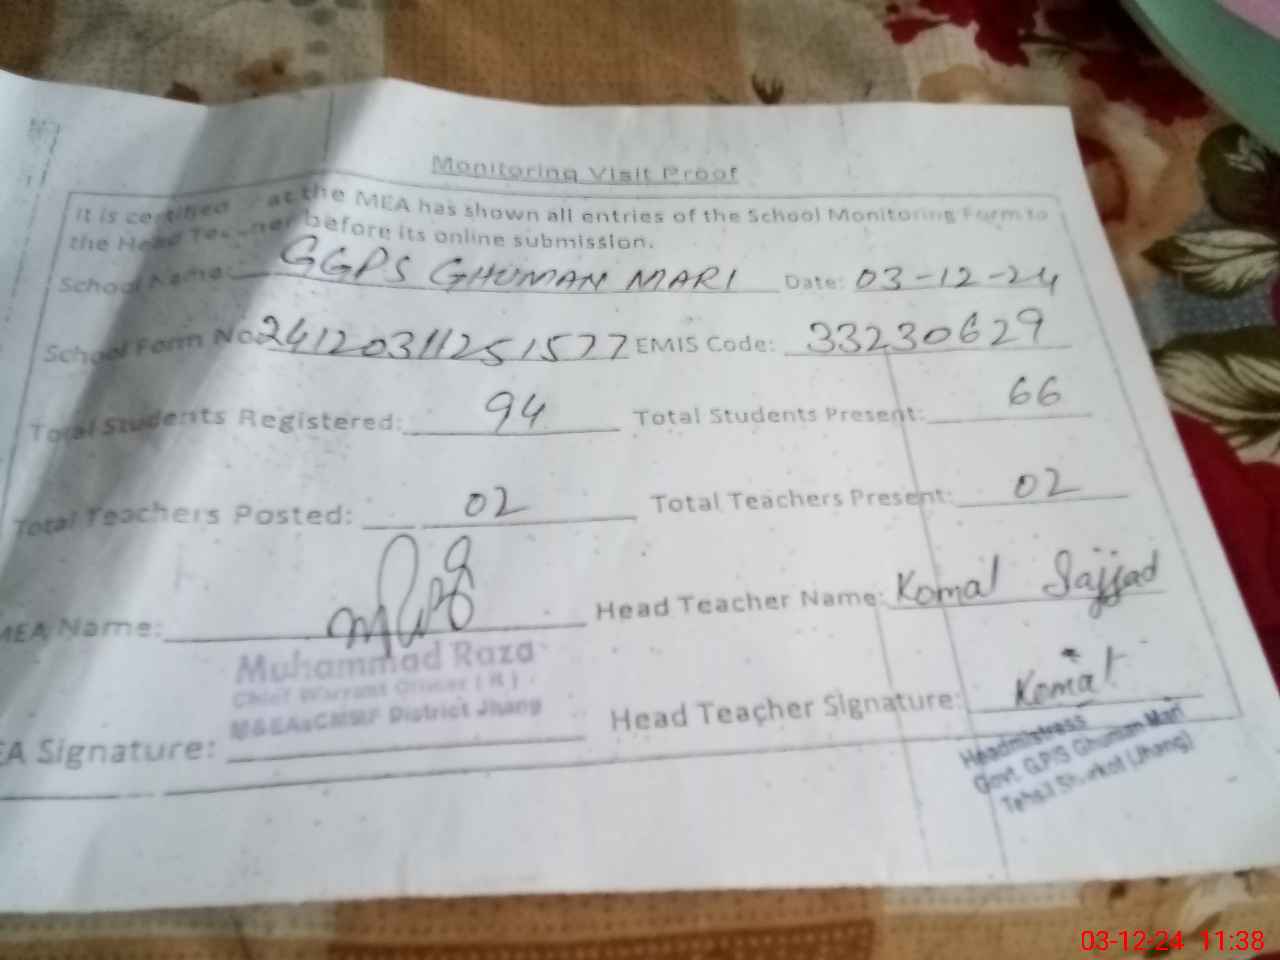 Monitoring Visit Proof
It is certified at the MEA has shown all entries of the School Monitoring Form to
the Head Teacher before its online submission.
School Name: GGPS GHUMAN MARI Date: 03-12-24
School Form No. 24120311251577 EMIS Code: 33230629
Total Students Registered: 94 Total Students Present: 66
Total Teachers Posted: 02 Total Teachers Present: 02
MEA Name: Head Teacher Name: Komal Sajjad
Muhammad Raza
Chief Warrant Officer (R)
District Jhang
EA Signature: Head Teacher Signature: Komal
Headmistress
Govt. G.P/S Ghuman Mari
Tehsil Shorkot (Jhang)
03-12-24 11:38